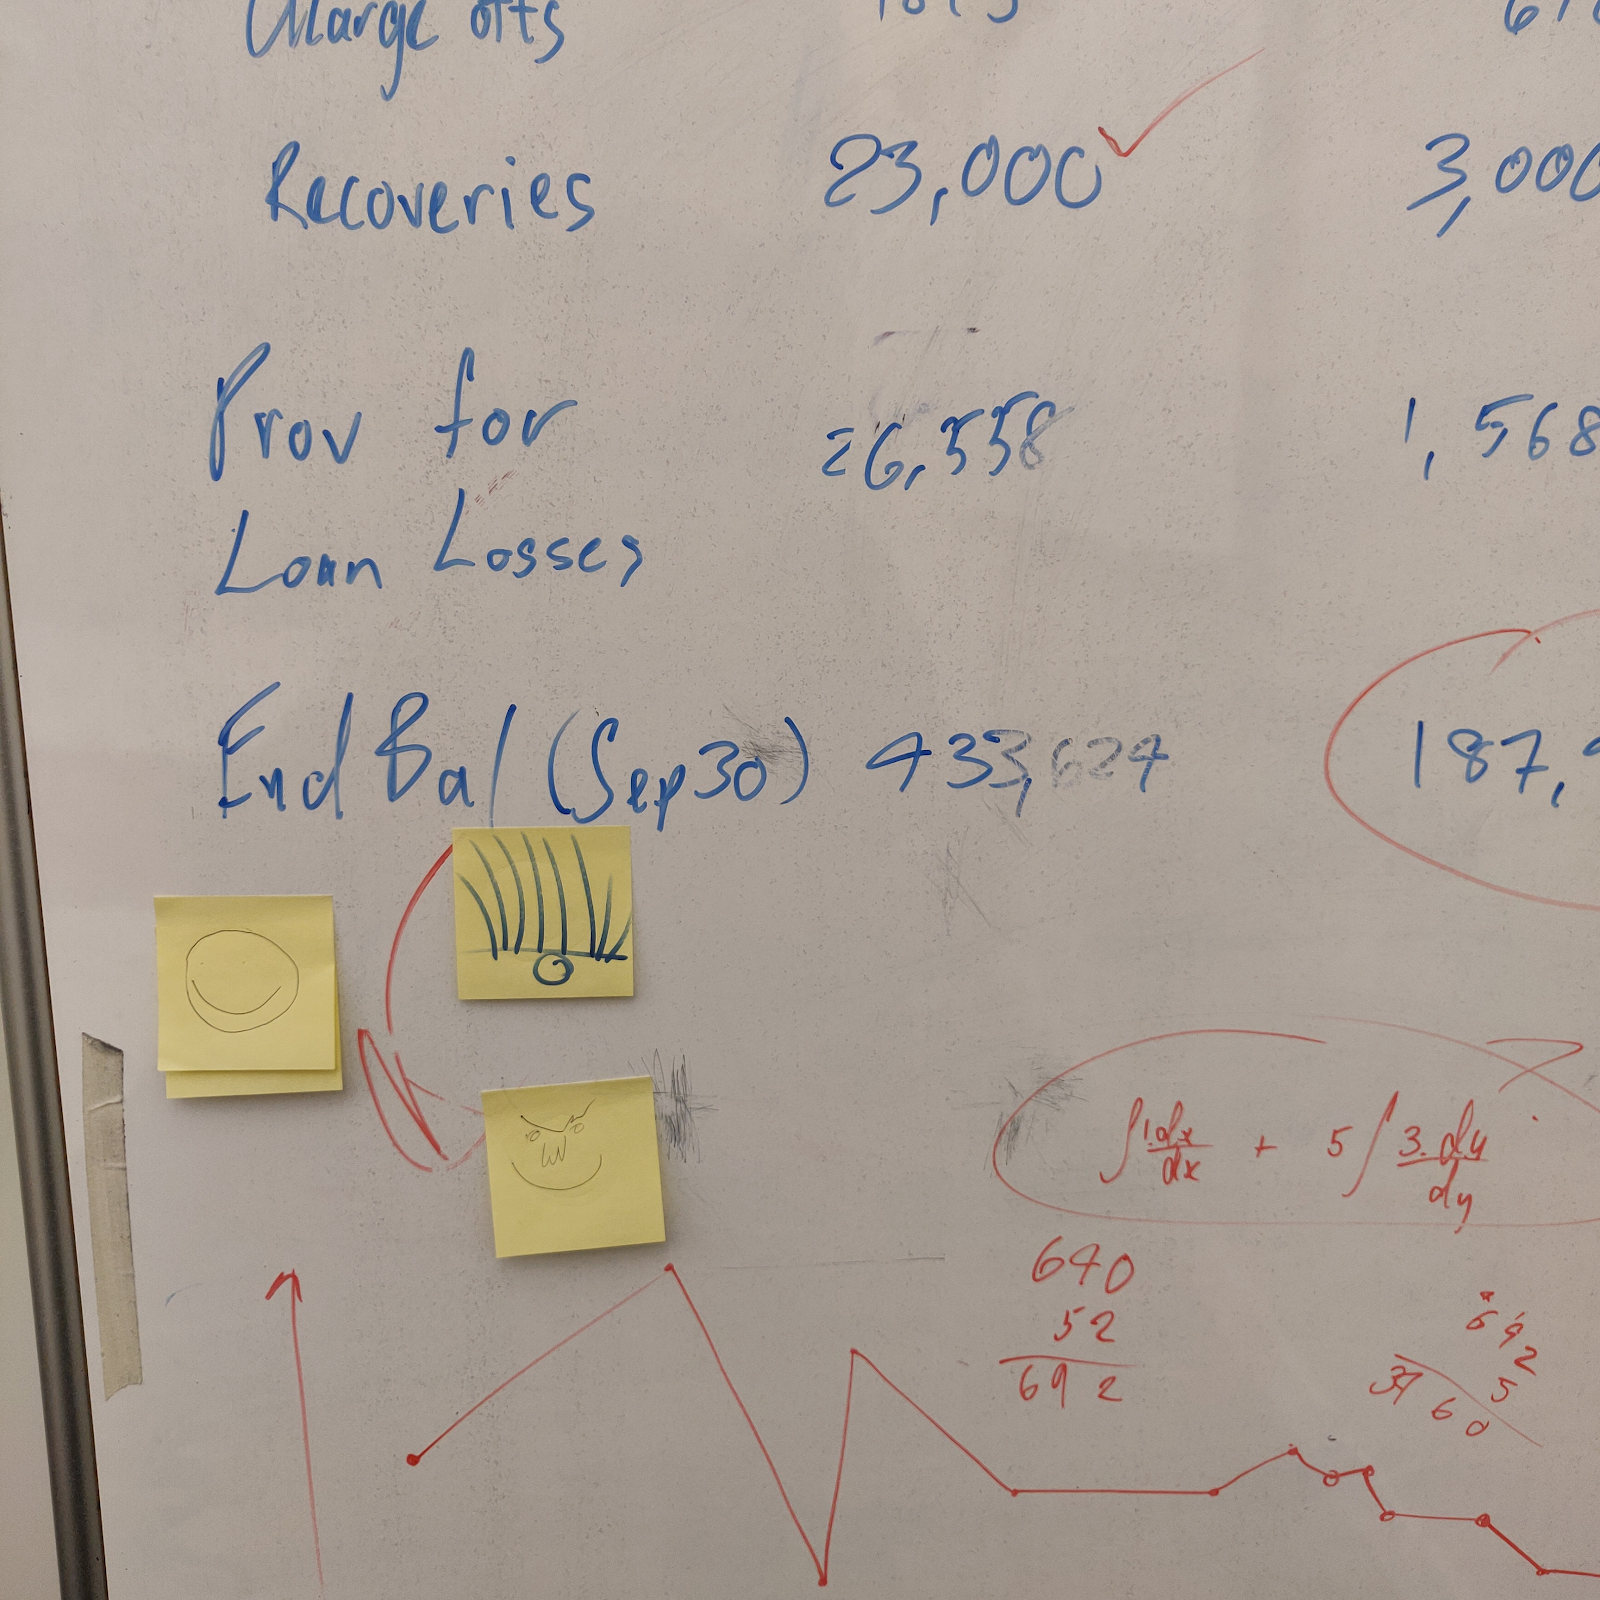 Charge offs
Recoveries 23,000 3,000
Prov for 26,558 1,568
Loan Losses
End Bal (Sep 30) 433,624 187,
∫ 1.dx/dx + 5 ∫ 3.dy/dy
640
52
692
692
5
3760